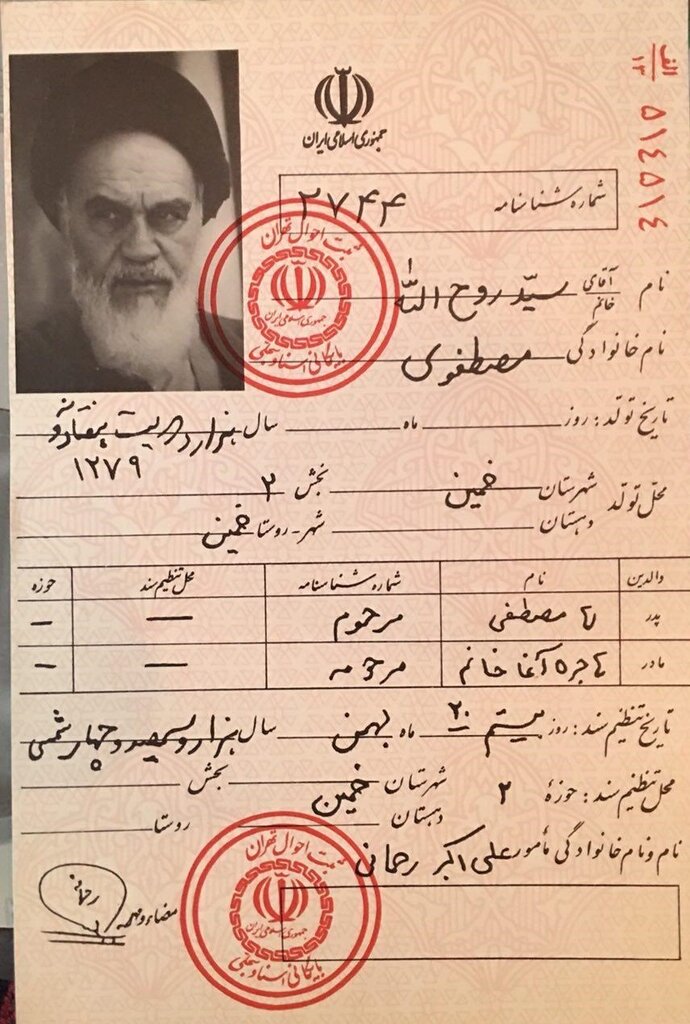 الف
١٣
٥١٤٥١٤
جمهوری اسلامی ایران
شماره شناسنامه ٢٧٤٤
نام آقای خانم سیّد روح اللّه
نام خانوادگی مصطفوی
تاریخ تولد: روز ماه سال هزار و دویست و هفتاد و نه
١٢٧٩
محلّ تولّد شهرستان خمین بخش ٢
دهستان شهر-روستا خمین
والدین نام شماره شناسنامه محل تنظیم سند حوزه
پدر مصطفی مرحوم — —
مادر هاجره آغا خانم مرحومه — —
تاریخ تنظیم سند: روز بیستم ٢٠ ماه بهمن سال هزار و سیصد و چهار شمسی
محل تنظیم سند: حوزهٔ ٢ شهرستان خمین بخش
دهستان روستا
نام و نام خانوادگی مأمور علی اکبر رحمانی
امضاء و مهر
ثبت احوال تهران
جمهوری اسلامی ایران
بایگانی اسناد سجلی
ثبت احوال تهران
جمهوری اسلامی ایران
بایگانی اسناد سجلی